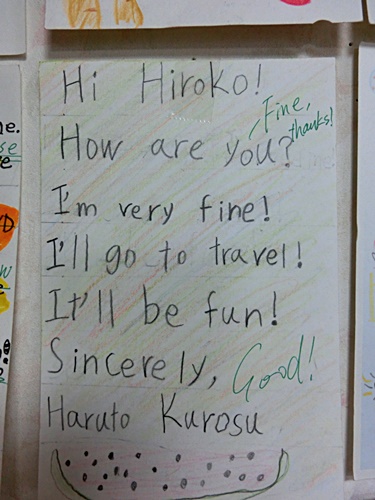 Hi Hiroko!
Fine,
thanks!
How are you?
I'm very fine!
I'll go to travel!
It'll be fun!
Sincerely,
Good!
Haruto Kurosu